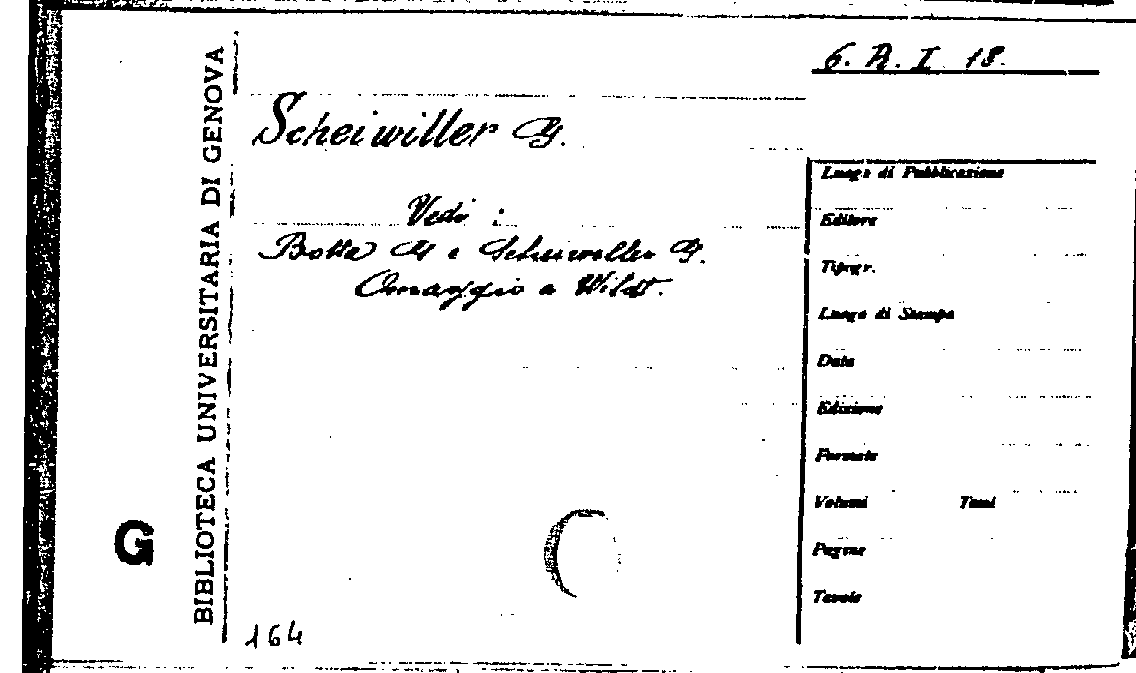 6. R. I 18.
Scheiwiller G.
Vedi :
Botta G e Scheiwiller G.
Omaggio a Wildt.
BIBLIOTECA UNIVERSITARIA DI GENOVA
G
164
Luogo di Pubblicazione
Editore
Tipogr.
Luogo di Stampa
Data
Edizione
Formato
Volumi Tomi
Pagine
Tavole